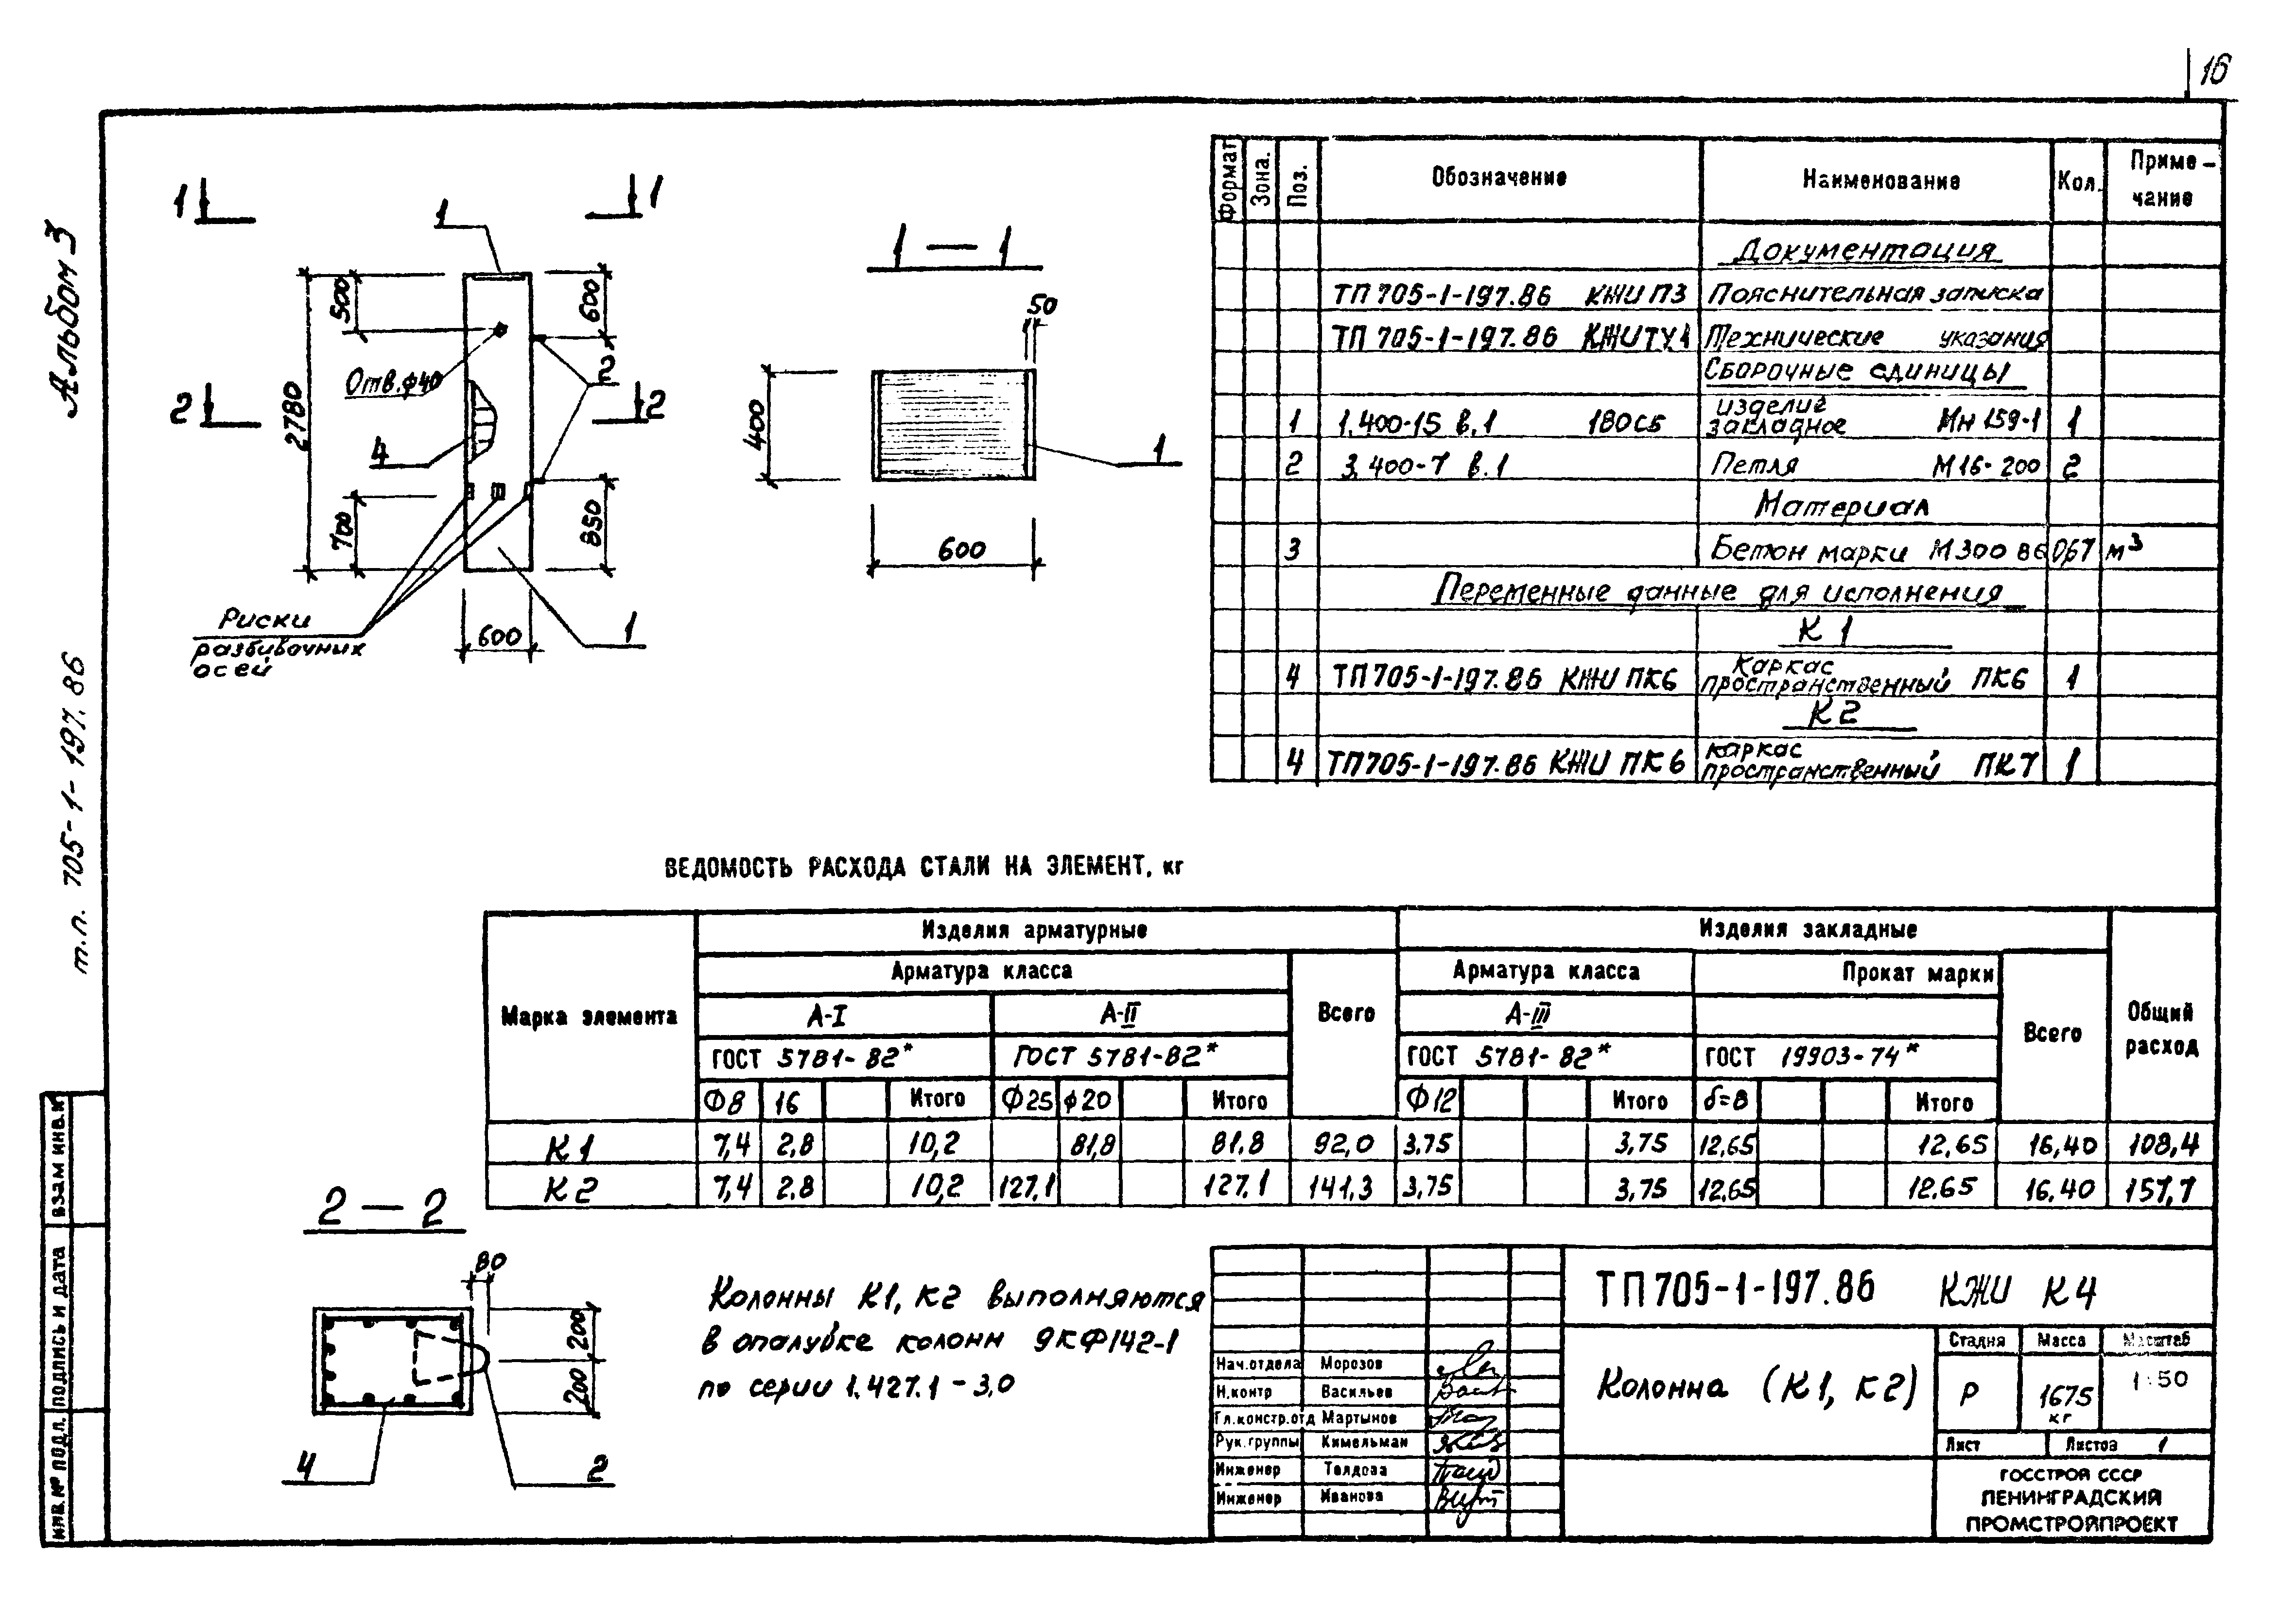 16
Альбом 3
т.п. 705-1-197.86
1 1
1
2780
500
600
Отв. ф40
2
2 2
4
700
850
Риски
разбивочных
осей
600
1
1—1
50
400
1
600
Формат Зона. Поз. Обозначение Наименование Кол. Приме-
чание
Документация
ТП 705-1-197.86 КЖИ ПЗ Пояснительная записка
ТП 705-1-197.86 КЖИ ТУ1 Технические указания
Сборочные единицы
1 1.400-15 в.1 180СБ изделие закладное Мн 159-1 1
2 3.400-7 в.1 Петля М16-200 2
Материал
3 Бетон марки М300 В6 0,67 м³
Переменные данные для исполнения
К1
4 ТП 705-1-197.86 КЖИ ПК6 Каркас пространственный ПК6 1
К2
4 ТП 705-1-197.86 КЖИ ПК6 каркас пространственный ПК7 1
ВЕДОМОСТЬ РАСХОДА СТАЛИ НА ЭЛЕМЕНТ, кг
Марка элемента Изделия арматурные Изделия закладные Общий расход
Арматура класса Всего Арматура класса Прокат марки Всего
А-I А-II А-III
ГОСТ 5781-82* ГОСТ 5781-82* ГОСТ 5781-82* ГОСТ 19903-74*
Ф8 16 Итого Ф25 ф20 Итого Ф12 Итого δ=8 Итого
К1 7,4 2,8 10,2 81,8 81,8 92,0 3,75 3,75 12,65 12,65 16,40 108,4
К2 7,4 2,8 10,2 127,1 127,1 141,3 3,75 3,75 12,65 12,65 16,40 157,7
2—2
80
200
200
4
2
Колонны К1, К2 выполняются
в опалубке колонн 9КФ142-1
по серии 1.427.1-3,0
ТП 705-1-197.86 КЖИ К4
Колонна (К1, К2)
Стадия Масса Масштаб
Р 1675 кг 1:50
Лист Листов 1
ГОССТРОЙ СССР
ЛЕНИНГРАДСКИЙ
ПРОМСТРОЙПРОЕКТ
Нач.отдела Морозов
Н.контр Васильев
Гл.констр.отд Мартынов
Рук.группы Кимельман
Инженер Талдова
Инженер Иванова
ВЗАМ ИНВ.№
ПОДПИСЬ И ДАТА
ИНВ.№ ПОДЛ.